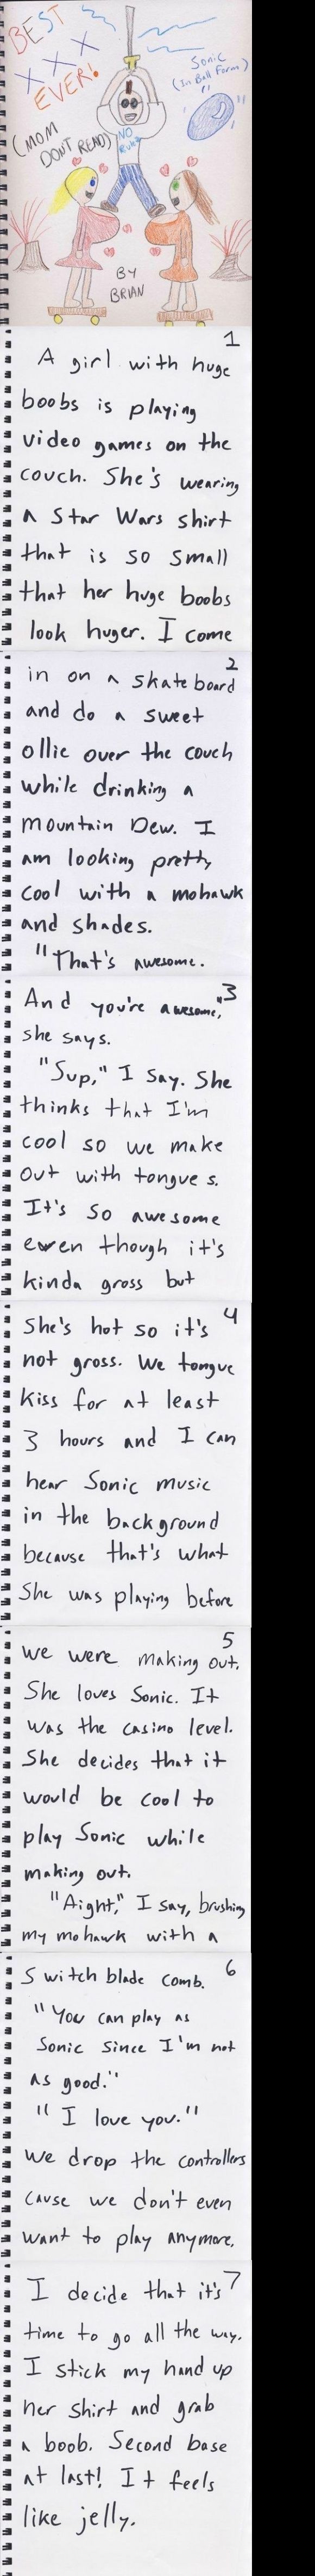 BEST
XXX
EVER!
(MOM
DONT READ)
NO
Rules
Sonic
(In Ball Form)
BY
BRIAN
1
A girl with huge
boobs is playing
video games on the
couch. She's wearing
a Star Wars shirt
that is so small
that her huge boobs
look huger. I come
2
in on a skateboard
and do a sweet
ollie over the couch
while drinking a
mountain Dew. I
am looking pretty
cool with a mohawk
and shades.
"That's awesome.
3
And you're awesome,"
she says.
"Sup," I say. She
thinks that I'm
cool so we make
out with tongues.
It's so awesome
even though it's
kinda gross but
4
she's hot so it's
not gross. We tongue
kiss for at least
3 hours and I can
hear Sonic music
in the background
because that's what
she was playing before
5
we were making out.
She loves Sonic. It
was the casino level.
She decides that it
would be cool to
play Sonic while
making out.
"Aight," I say, brushing
my mohawk with a
6
switch blade comb.
"You can play as
Sonic since I'm not
as good."
"I love you."
We drop the controllers
cause we don't even
want to play anymore.
7
I decide that it's
time to go all the way.
I stick my hand up
her shirt and grab
a boob. Second base
at last! It feels
like jelly.